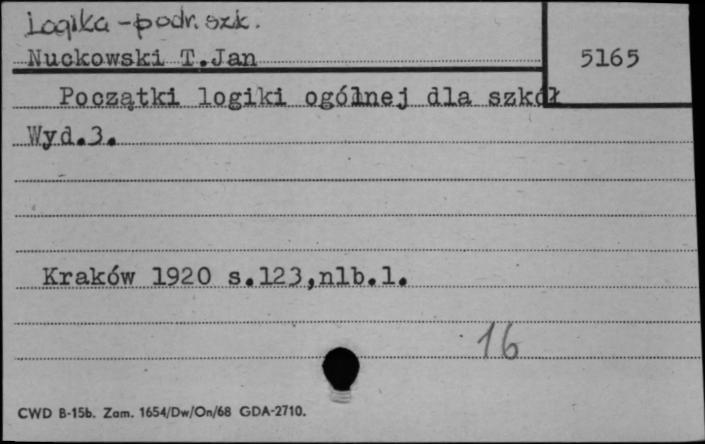 Logika - podr. szk.
Nuckowski T.Jan
5165
Początki logiki ogólnej dla szkół
Wyd.3.
Kraków 1920 s.123,nlb.1.
16
CWD B-15b. Zam. 1654/Dw/On/68 GDA-2710.